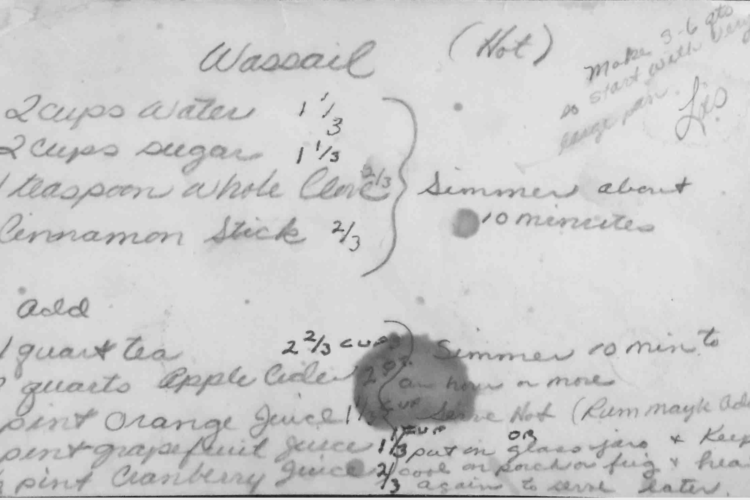 Wassail (Hot)
Make 3-6 qts
so start with very
large pan.
2 cups water 1 1/3
2 cups sugar 1 1/3
1 teaspoon whole Clove 2/3
Cinnamon Stick 2/3
Simmer about
10 minutes
Add
1 quart tea 2 2/3 cups
quarts Apple Cider 2
pint Orange Juice 1 1/3 cup
pint grapefruit Juice 1 1/3 cup
pint Cranberry Juice 2/3
Simmer 10 min to
an hour or more
Serve Hot (Rum
OR
put in glass jars & Keep
cool on porch or frig & heat
again to serve later